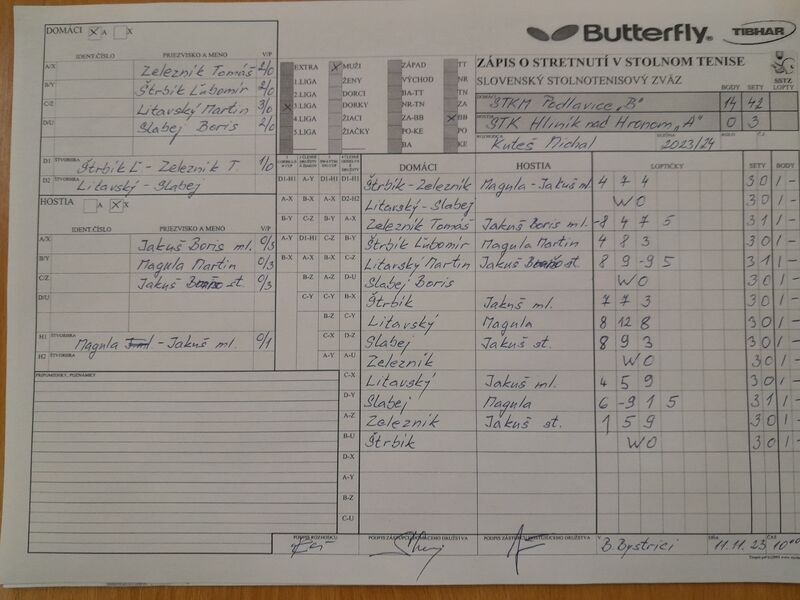 DOMÁCI X A X
IDENT.ČÍSLO PRIEZVISKO A MENO V/P
A/X Železník Tomáš 2/0
B/Y Štrbík Ľubomír 2/0
C/Z Litavský Martin 3/0
D/U Slabej Boris 2/0
D1 ŠTVORHRA Štrbík Ľ. - Železník T. 1/0
D2 ŠTVORHRA Litavský - Slabej
HOSTIA A X X
IDENT.ČÍSLO PRIEZVISKO A MENO V/P
A/X Jakuš Boris ml. 0/3
B/Y Magula Martin 0/3
C/Z Jakuš st. 0/3
D/U
H1 ŠTVORHRA Magula - Jakuš ml. 0/1
H2 ŠTVORHRA
PRIPOMIENKY, POZNÁMKY
Butterfly TIBHAR
EXTRA X MUŽI ZÁPAD TT
1.LIGA ŽENY VÝCHOD NR
2.LIGA DORCI BA-TT TN
X 3.LIGA DORKY NR-TN ZA
4.LIGA ŽIACI ZA-BB X BB
5.LIGA ŽIAČKY PO-KE PO
BA KE
ZÁPIS O STRETNUTÍ V STOLNOM TENISE
SLOVENSKÝ STOLNOTENISOVÝ ZVÄZ
SSTZ
BODY SETY LOPTY
DOMÁCI STKM Podlavice „B" 14 42
HOSTIA STK Hliník nad Hronom „A" 0 3
ROZHODCA Kuteš Michal SEZÓNA 2023/24 KOLO Č.Z.
DOMÁCI HOSTIA LOPTIČKY SETY BODY
D1-H1 A-Y D1-H1 D1-H1 Štrbík - Železník Magula - Jakuš ml. 4 7 4 3 0 1 -
A-X B-X A-X D2-H2 Litavský - Slabej WO 3 0 1 -
B-Y C-Z B-Y A-X Železník Tomáš Jakuš Boris ml. -8 4 7 5 3 1 1 -
A-Y D1-H1 C-Z B-Y Štrbík Ľubomír Magula Martin 4 8 3 3 0 1 -
B-X A-X B-X C-Z Litavský Martin Jakuš st. 8 9 -9 5 3 1 1 -
B-Z A-Z D-U Slabej Boris WO 3 0 1 -
C-Y C-Y B-X Štrbík Jakuš ml. 7 7 3 3 0 1 -
B-Z C-Y Litavský Magula 8 12 8 3 0 1 -
C-X D-Z Slabej Jakuš st. 8 9 3 3 0 1 -
A-Y A-U Železník WO 3 0 1 -
C-X Litavský Jakuš ml. 4 5 9 3 0 1 -
D-Y Slabej Magula 6 -9 1 5 3 1 1 -
A-Z Železník Jakuš st. 1 5 9 3 0 1 -
B-U Štrbík WO 3 0 1 -
D-X
A-Y
B-Z
C-U
PODPIS ROZHODCU PODPIS ZÁSTUPCU DOMÁCEHO DRUŽSTVA PODPIS ZÁSTUPCU HOSŤUJÚCEHO DRUŽSTVA V B.Bystrici DŇA 11.11.23 ČAS 10°°